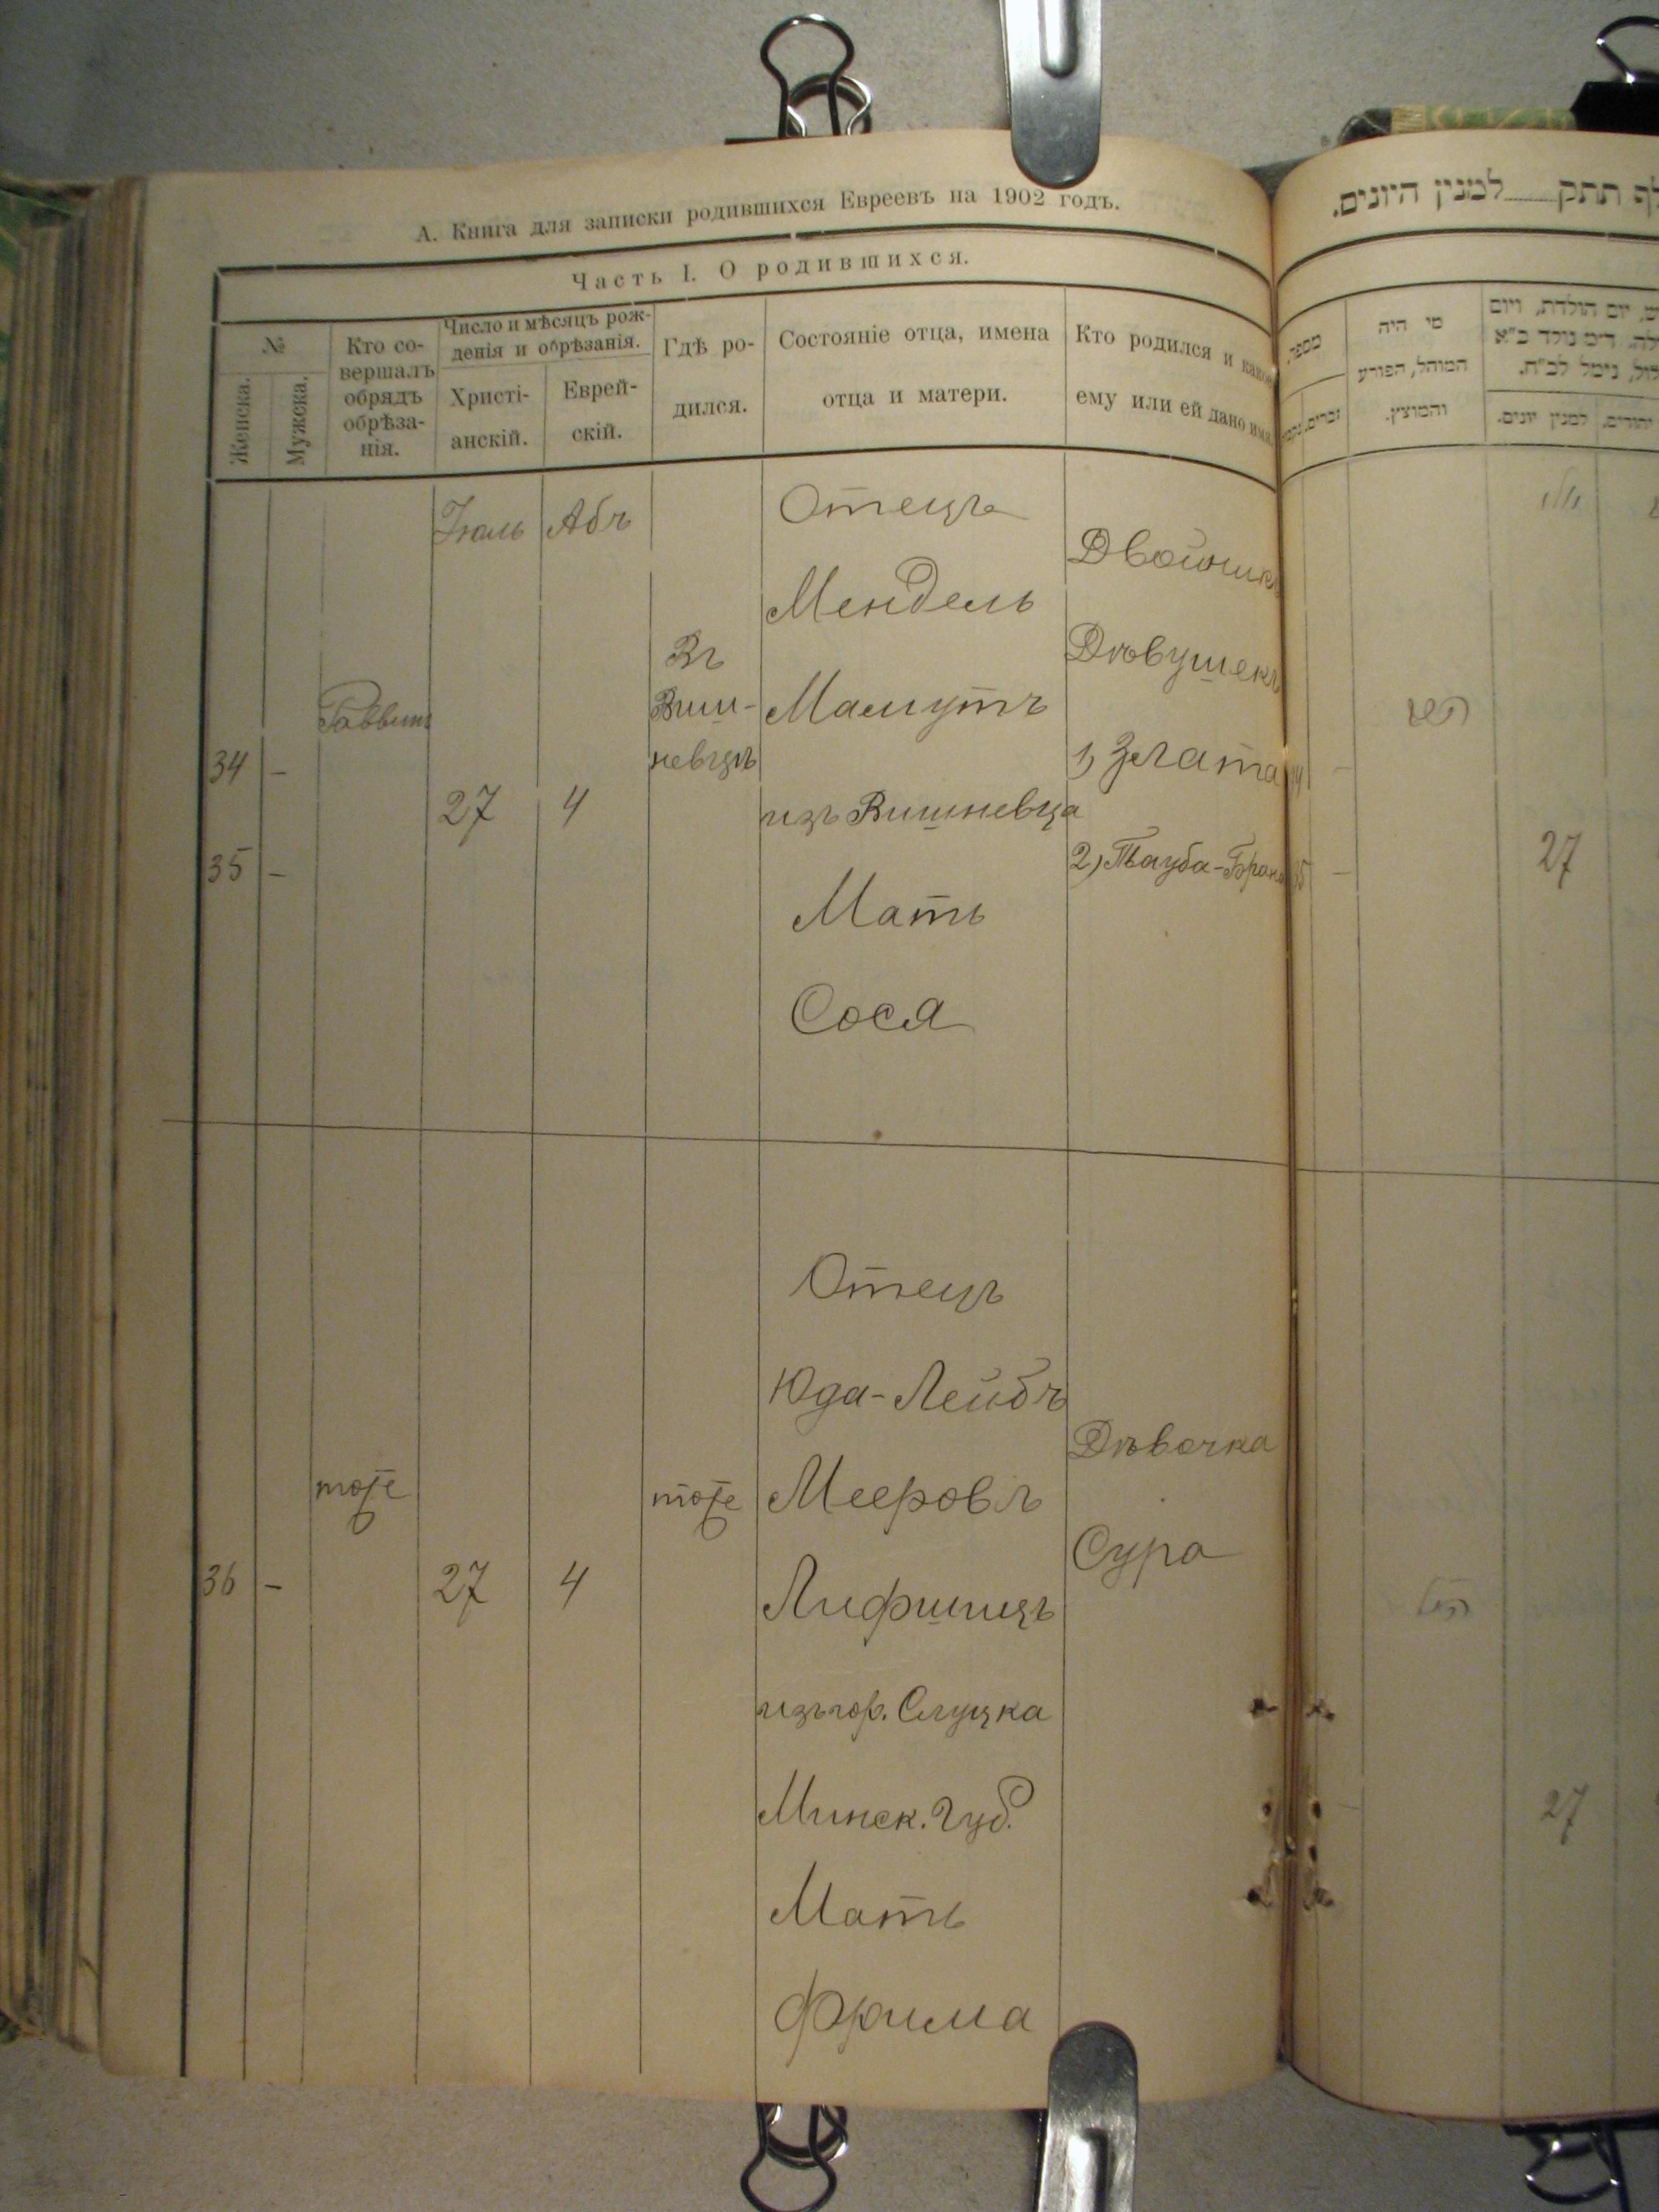 А. Книга для записки родившихся Евреевъ на 1902 годъ.
Часть I. О родившихся.
№
Женска.
Мужска.
Кто со-
вершалъ
обрядъ
обрѣза-
нія.
Число и мѣсяцъ рож-
денія и обрѣзанія.
Христі-
анскій.
Еврей-
скій.
Гдѣ ро-
дился.
Состояніе отца, имена
отца и матери.
Кто родился и какое
ему или ей дано имя.
34 -
35 -
Раввинъ
Іюль
27
Абъ
4
Въ
Виш-
невцѣ
Отецъ
Мендель
Мамутъ
изъ Вишневца
Мать
Сося
Двойники
Дѣвушекъ
1) Злата
2) Тауба-Брана
36 -
тоже
27
4
тоже
Отецъ
Юда-Лейбъ
Мееровъ
Лифшицъ
изъ гор. Слуцка
Минск. Губ.
Мать
Фрима
Дѣвочка
Сура
תתק למנין היונים.
מספר
מי היה
המוהל, הפורע
והמוצץ.
יום הולדת, ויום
למנין יונים.
34 -
35 -
27
27